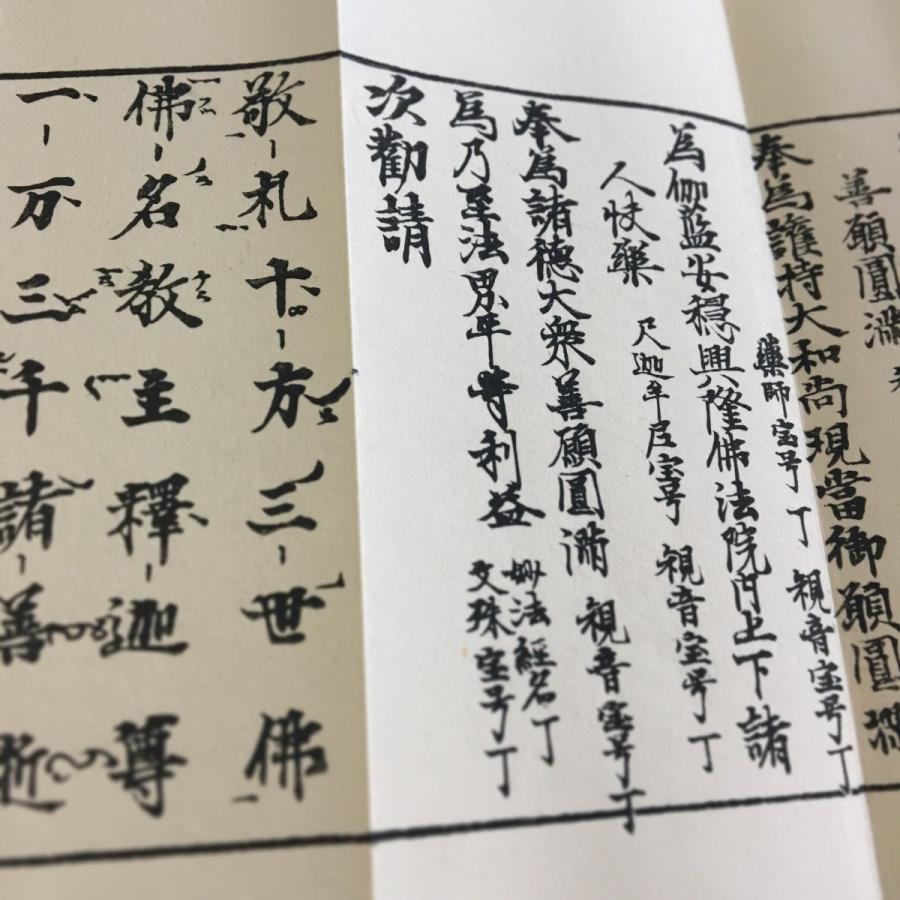 善願圓滿
奉為護持大和尚現當御願圓満
藥師宝号丁 観音宝号丁
為伽藍安穏興隆佛法院門上下諸
人快樂 尺迦牟尼宝号 観音宝号丁
奉為諸德大衆善願圓滿 観音宝号丁
為乃至法界平等利益 妙法經名丁
文殊宝号丁
次勸請
敬礼十方三世佛
佛名教主釋迦尊
一万三千諸善逝